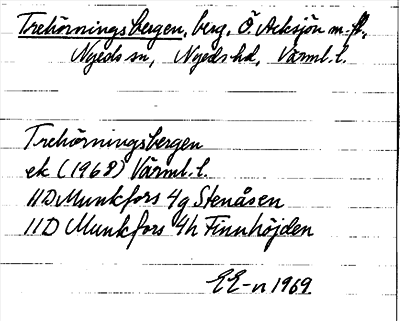 Trehörningsbergen, berg, Ö. Acksjön m. fl.,
Nyeds sn, Nyeds hd, Värml. l.
Trehörningsbergen
ek (1968) Värml. l.
11D Munkfors 4g Stenåsen
11D Munkfors 4h Finnhöjden
EE-n 1969